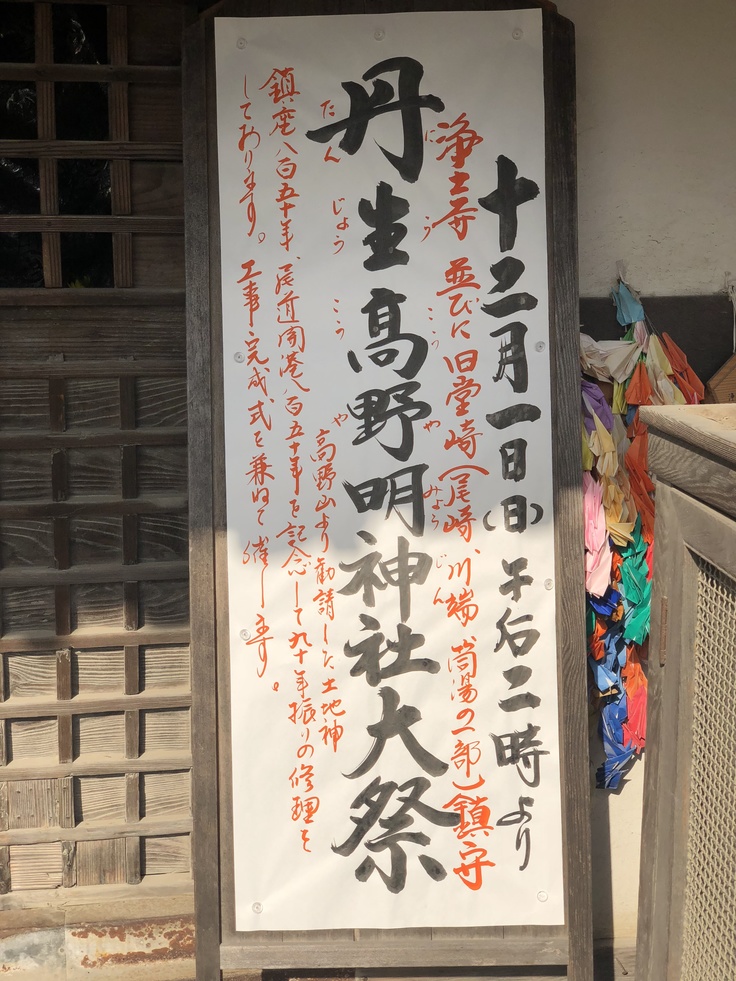 十二月一日(日)午后二時より
浄土寺並びに旧堂崎(尾崎、川端、筒湯の一部)鎮守
にう こうや みょうじん
丹生高野明神社大祭
たんじょう こうや
高野山より勧請した土地神
鎮座八百五十年、尾道開港八百五十年を記念して九十年振りの修理を
しております。工事完成式を兼ねて催します。